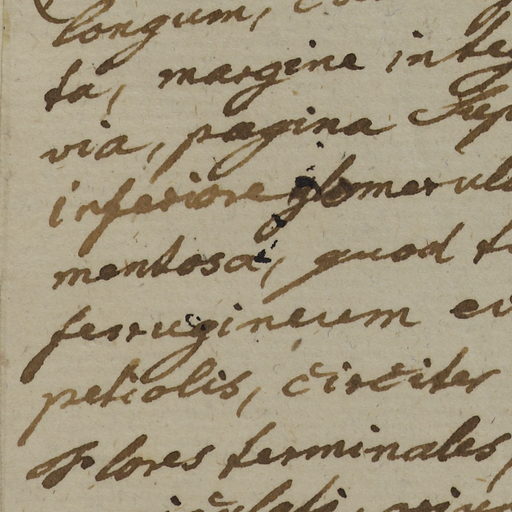 longum,
ta, margine integ
via, pagina Sup
inferiore glomerul
mentosa, quod t
ferrugineum ev
petiolis, circiter
Flores terminales,